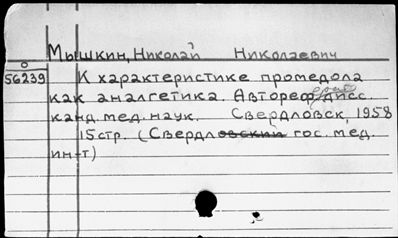 Мышкин, Николай Николаевич
56239 К характеристике промедола
как аналгетика. Автореферат дисс.
канд. мед. наук. Свердловск, 1958
15 стр. (Свердловский гос. мед.
ин-т)